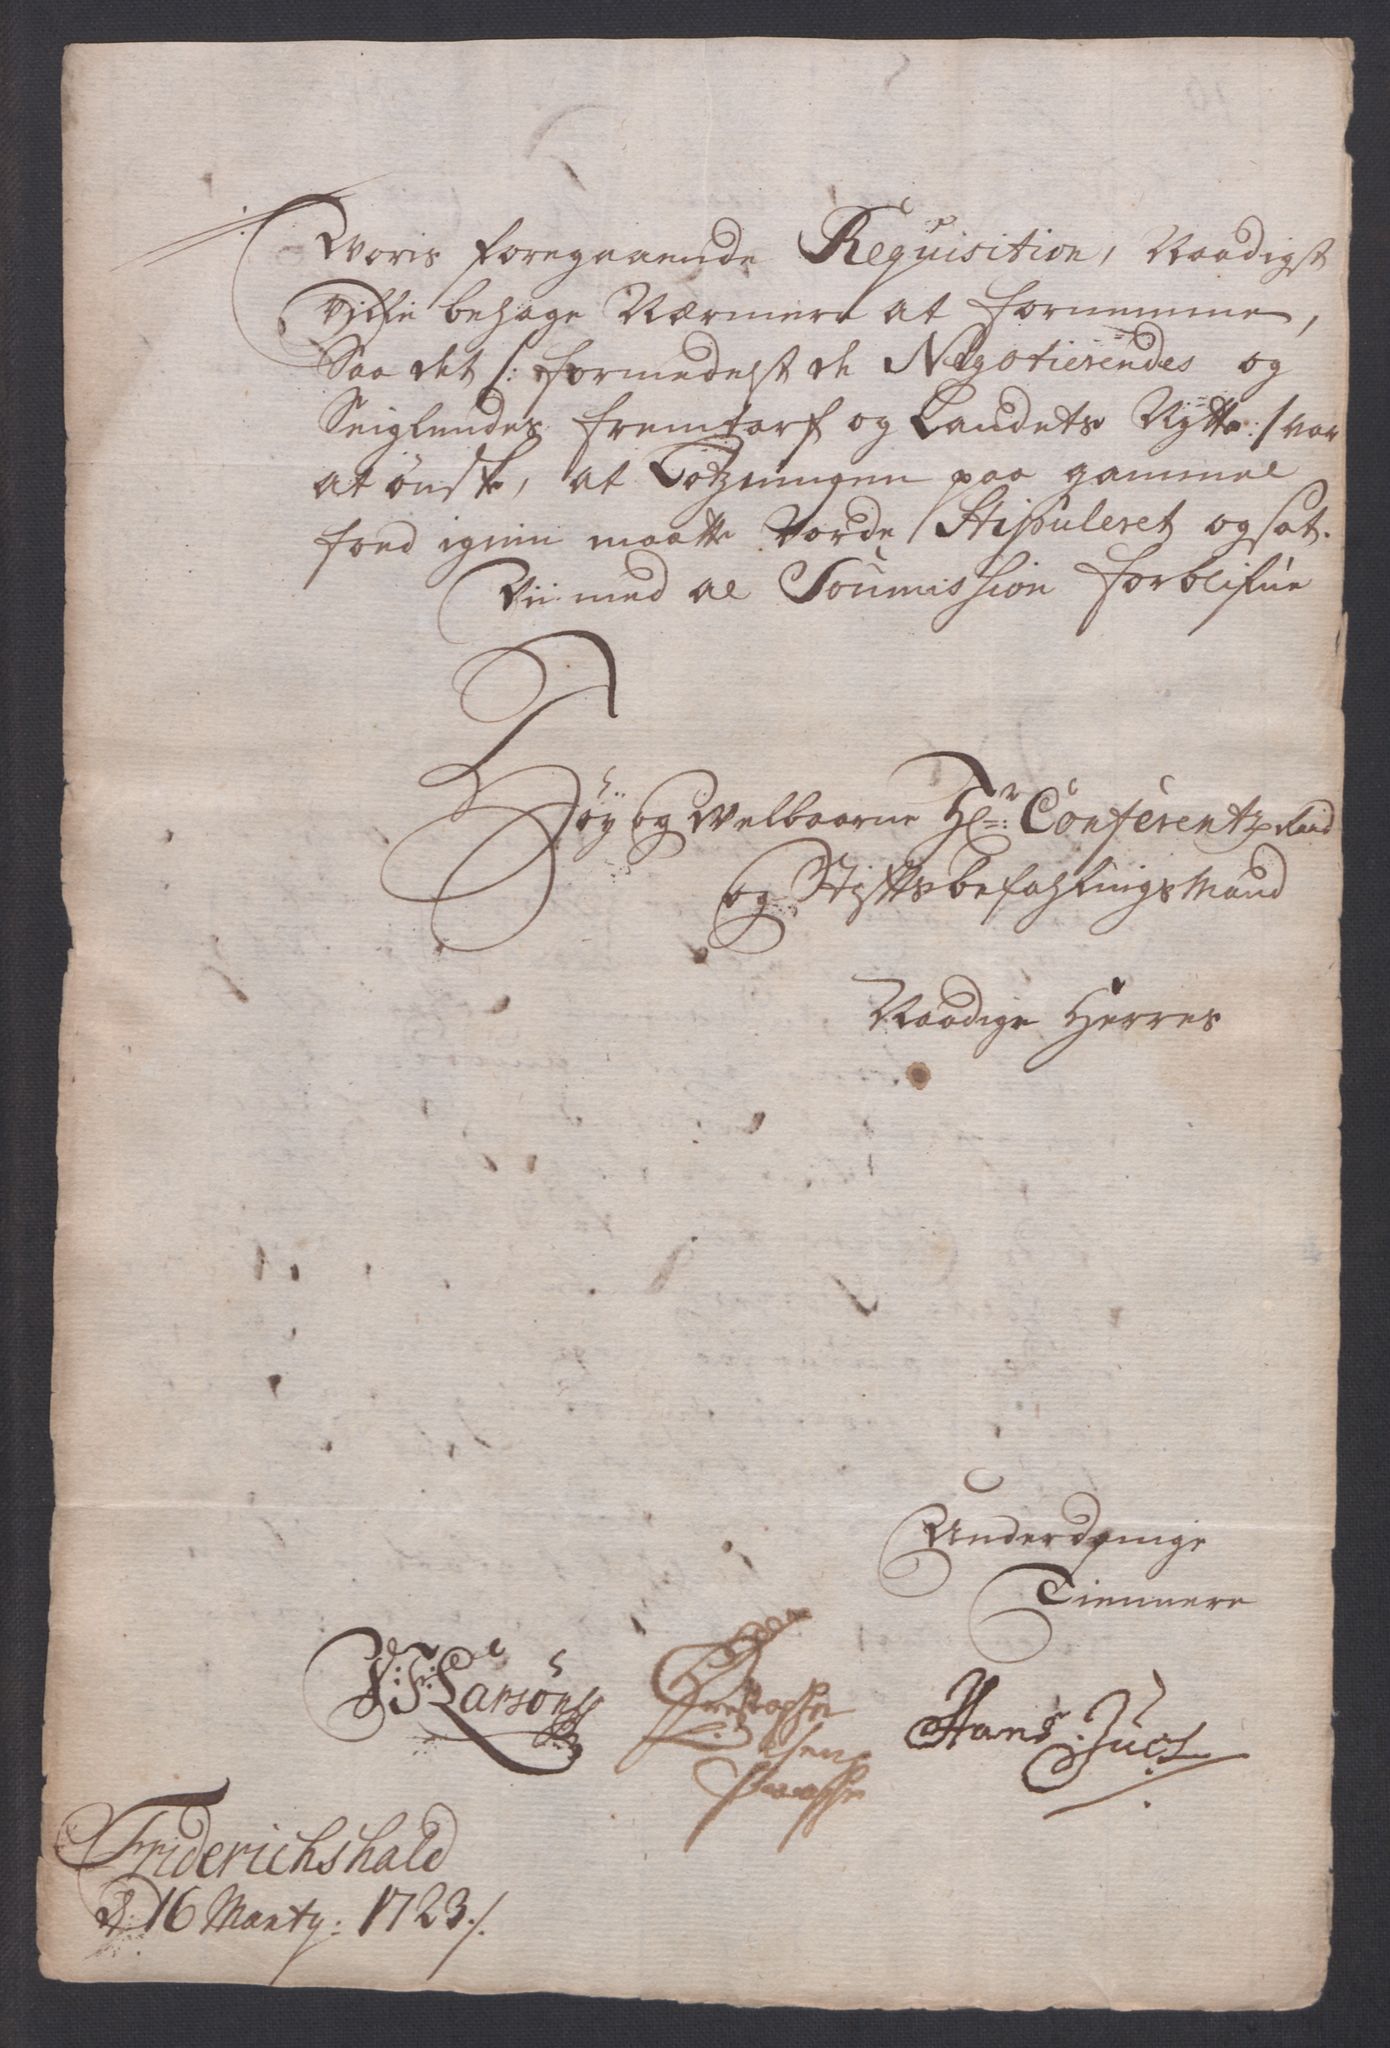 Woris foregaaende Requisition, Naadigst
Ville behage Nærmere at fornemme,
Saa det /: formedelst de Negotierendes og
Seiglendes fremtarf og Landets Nytte :/ var
at ønske, at Lotzningen paa gammel
foed igien maatte Vorde Stipuleret og sat.
Vii med al Soumission forblifue
Høy og Welbaarne Hr: Conferentz Raad
og Stiftsbefahlings Mand
Naadige Herres
Underdanige
Tiennere
V: F: Larsøn
Christopher
Olsen
Hans Juel
Friderichshald
d: 16 Marty: 1723 /.